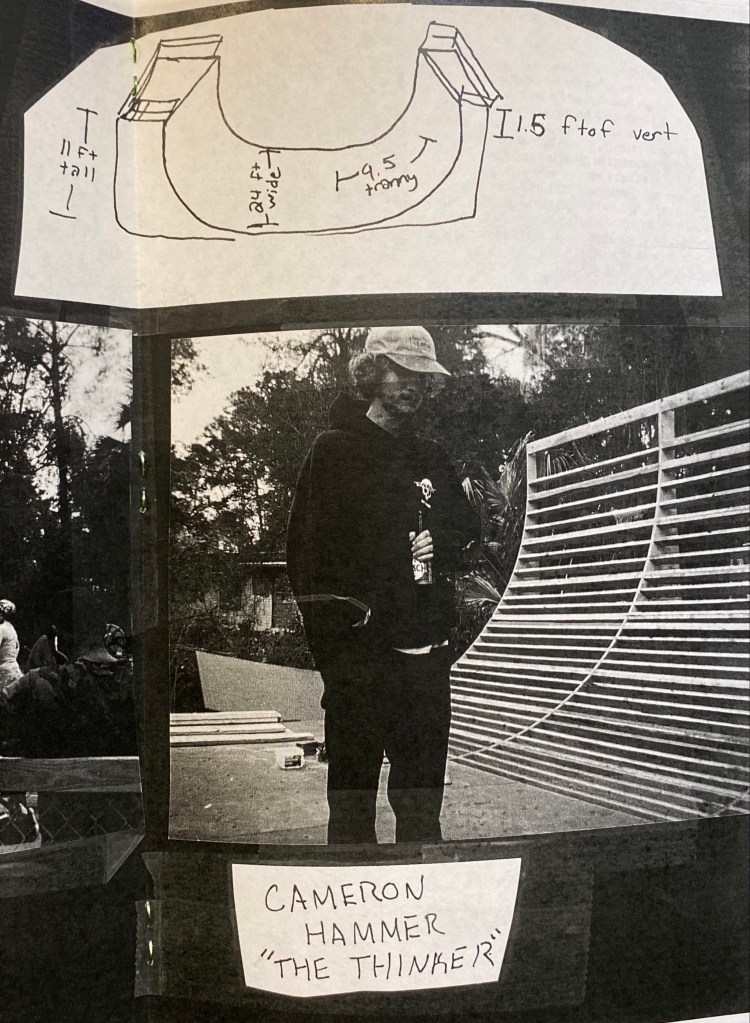 11 ft
tall
24 ft
wide
9.5
tranny
1.5 ft of vert
CAMERON
HAMMER
"THE THINKER"